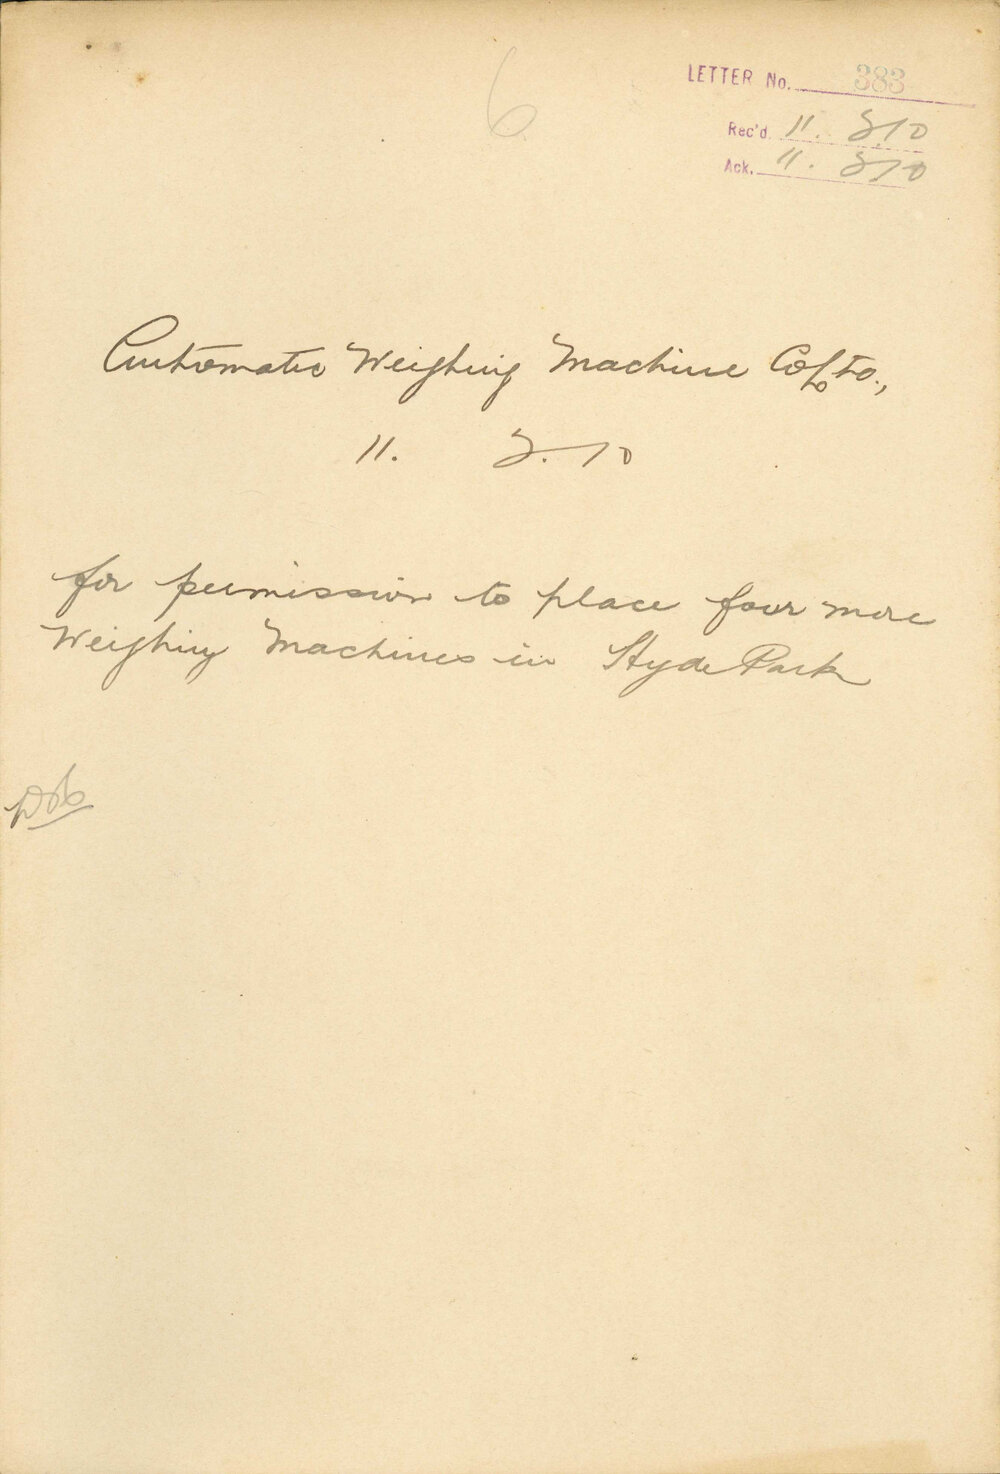 6
LETTER No. 383
Rec'd 11. 3/10
Ack. 11. 3/10
Automatic Weighing Machine Co Lto.,
11. 3. 10
for permission to place four more
Weighing Machines in Hyde Park